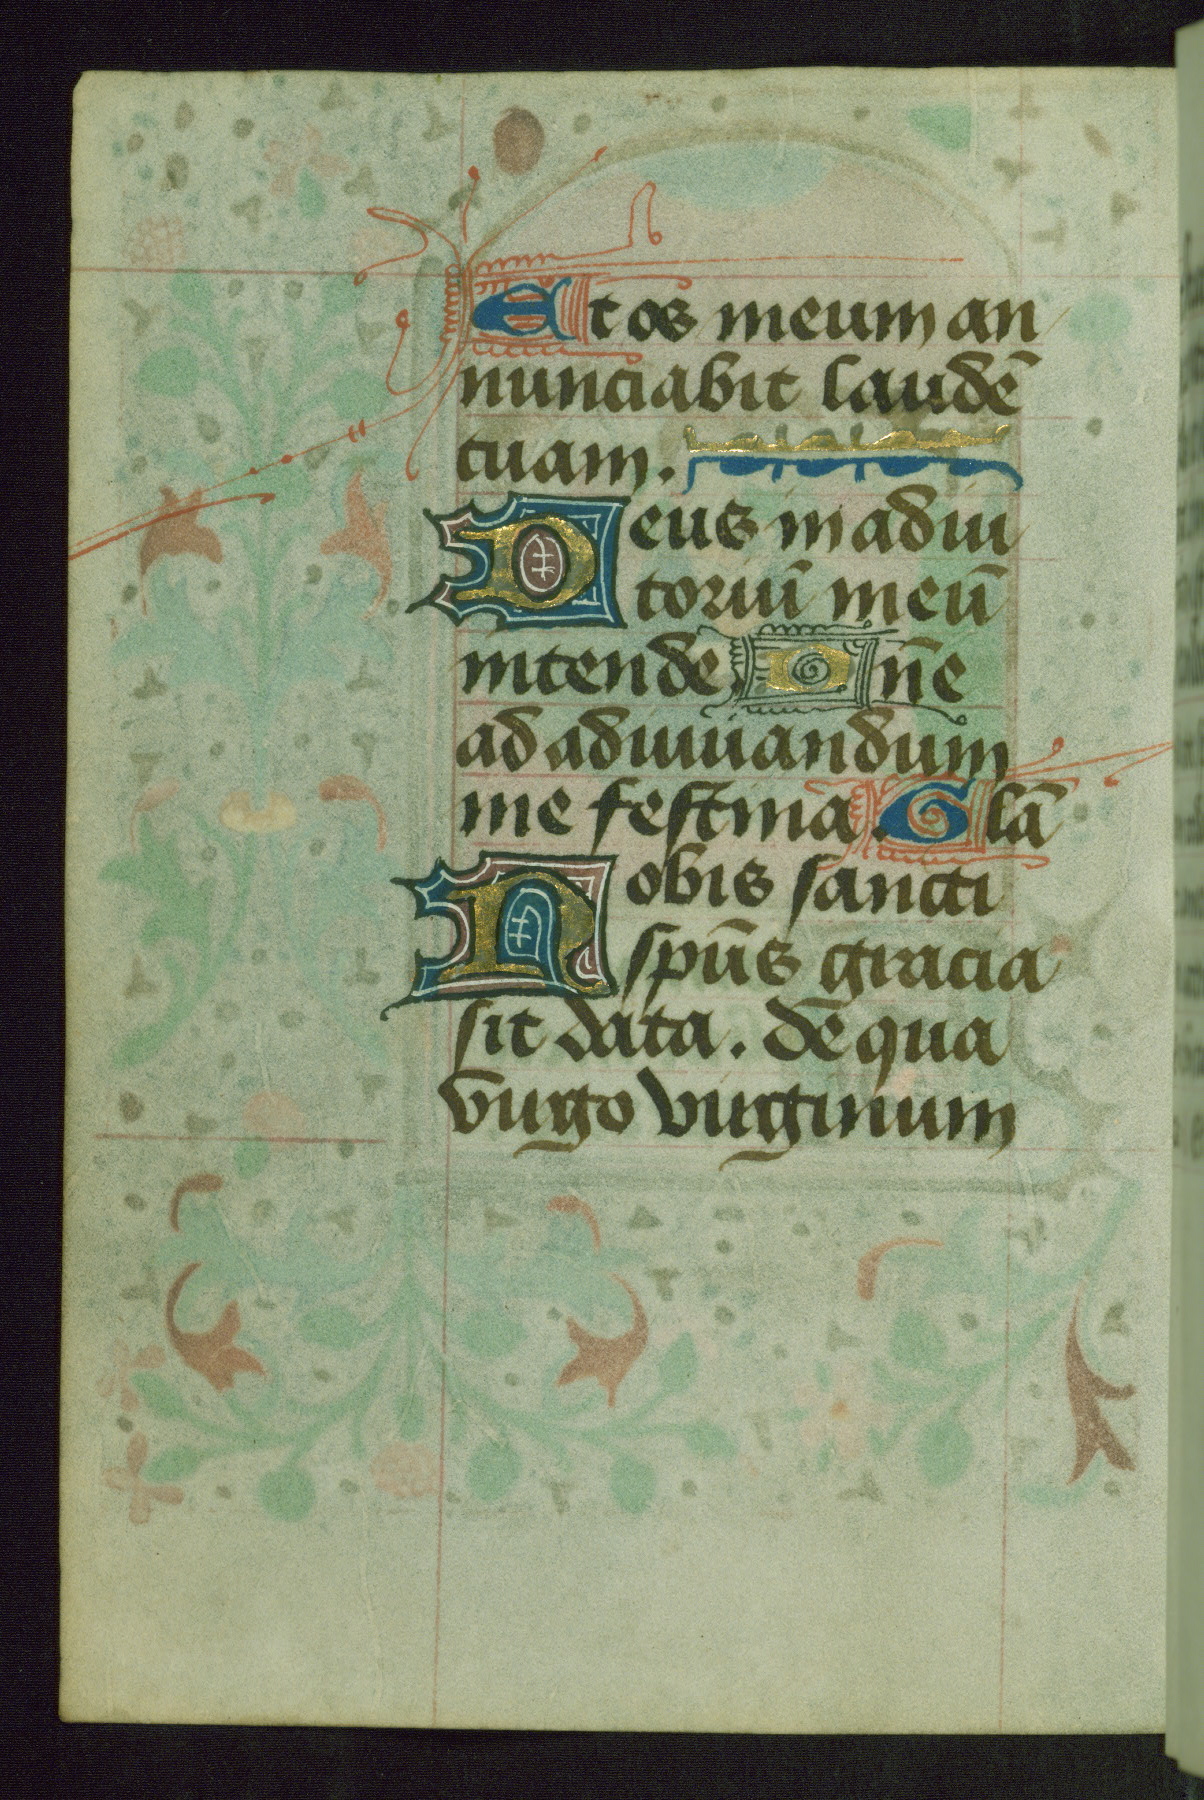 Et os meum an
nunciabit laudē
tuam.
Deus in adiu
toriuꝫ meū
intende Dn̄e
ad adiuuandum
me festina. Glā
Nobis sancti
spūs gracia
sit data. dē qua
virgo virginum